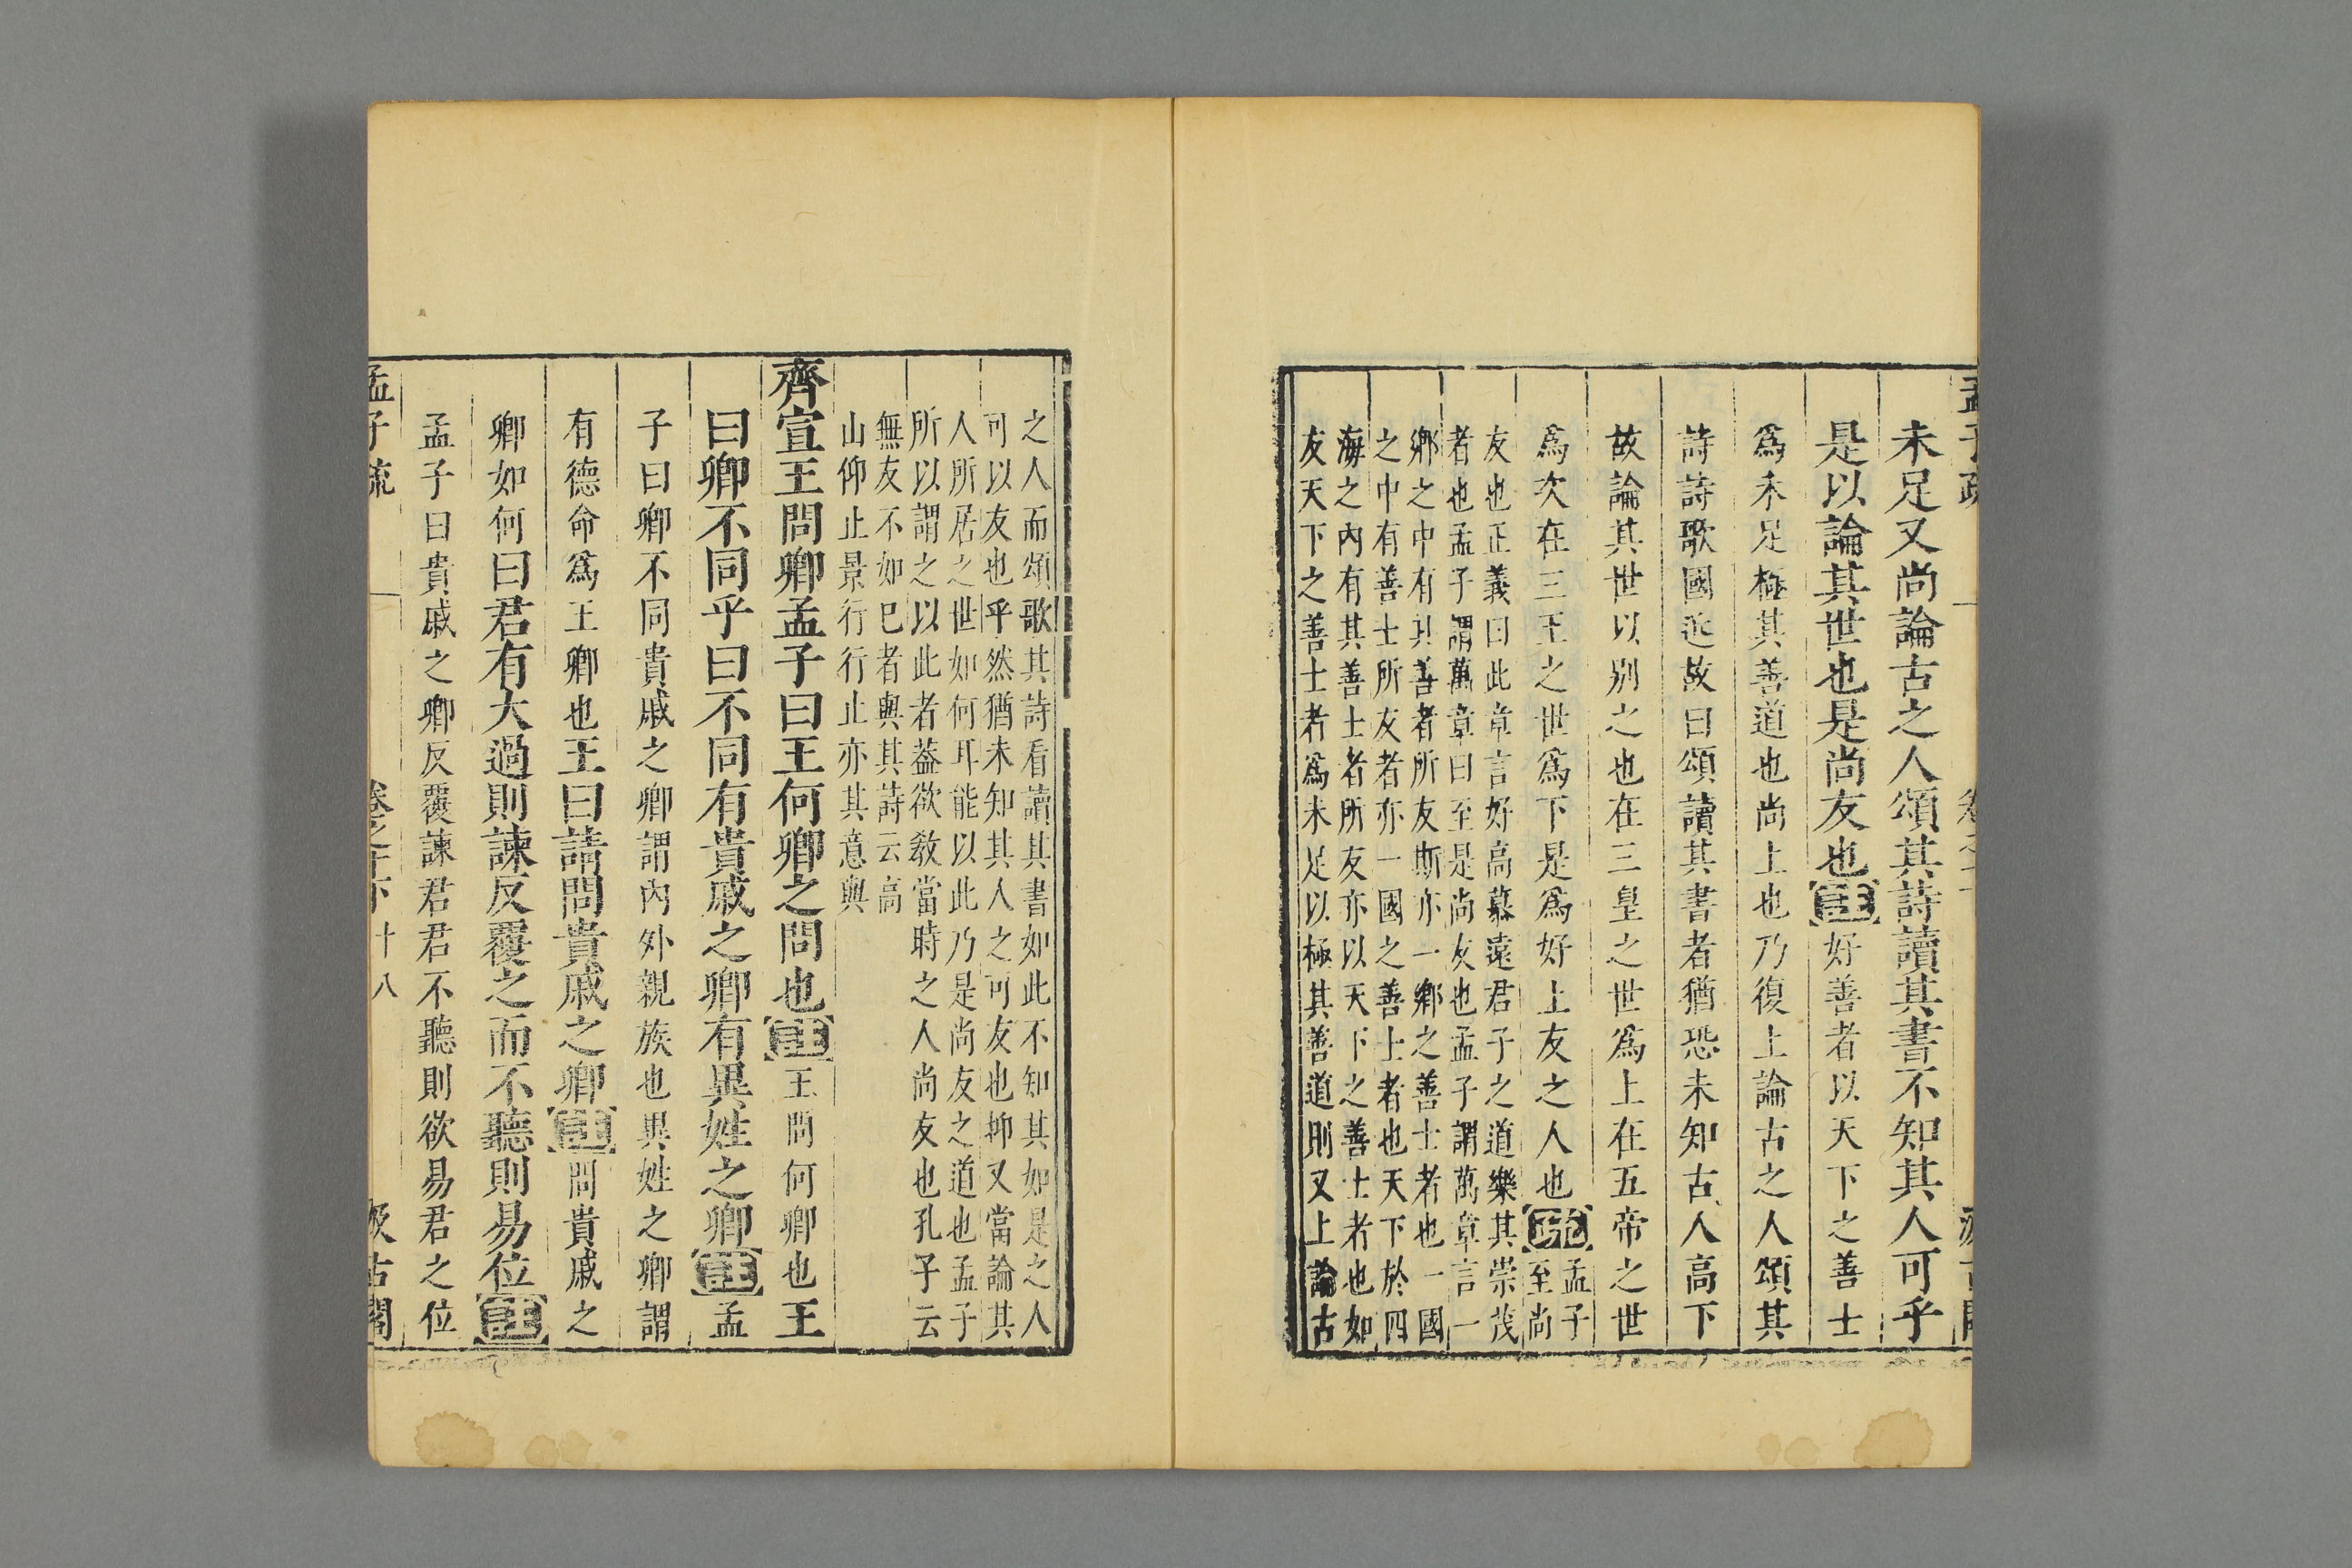 孟子疏
未足又尚論古之人頌其詩讀其書不知其人可乎
是以論其世也是尚友也註好善者以天下之善士
爲未足極其善道也尚上也乃復上論古之人頌其
詩詩歌國近故曰頌讀其書者猶恐未知古人高下
故論其世以別之也在三皇之世爲上在五帝之世
爲次在三王之世爲下是爲好上友之人也疏孟子
至尚
友也正義曰此章言好高慕遠君子之道樂其崇茂
者也孟子謂萬章曰至是尚友也孟子謂萬章言一
鄉之中有其善者所友斯亦一鄉之善士者也一國
之中有善士所友者亦一國之善士者也天下於四
海之內有其善士者所友亦以天下之善士者也如
友天下之善士者爲未足以極其善道則又上論古
之人而頌歌其詩看讀其書如此不知其如是之人
可以友也乎然猶未知其人之可友也抑又當論其
人所居之世如何耳能以此乃是尚友之道也孟子
所以謂之以此者葢欲敎當時之人尚友也孔子云
無友不如巳者與其詩云高
山仰止景行行止亦其意與
齊宣王問卿孟子曰王何卿之問也註王問何卿也王
曰卿不同乎曰不同有貴戚之卿有異姓之卿註孟
子曰卿不同貴戚之卿謂內外親族也異姓之卿謂
有德命爲王卿也王曰請問貴戚之卿註問貴戚之
卿如何曰君有大過則諫反覆之而不聽則易位註
孟子曰貴戚之卿反覆諫君君不聽則欲易君之位
孟子疏 卷之十下 十八 汲古閣